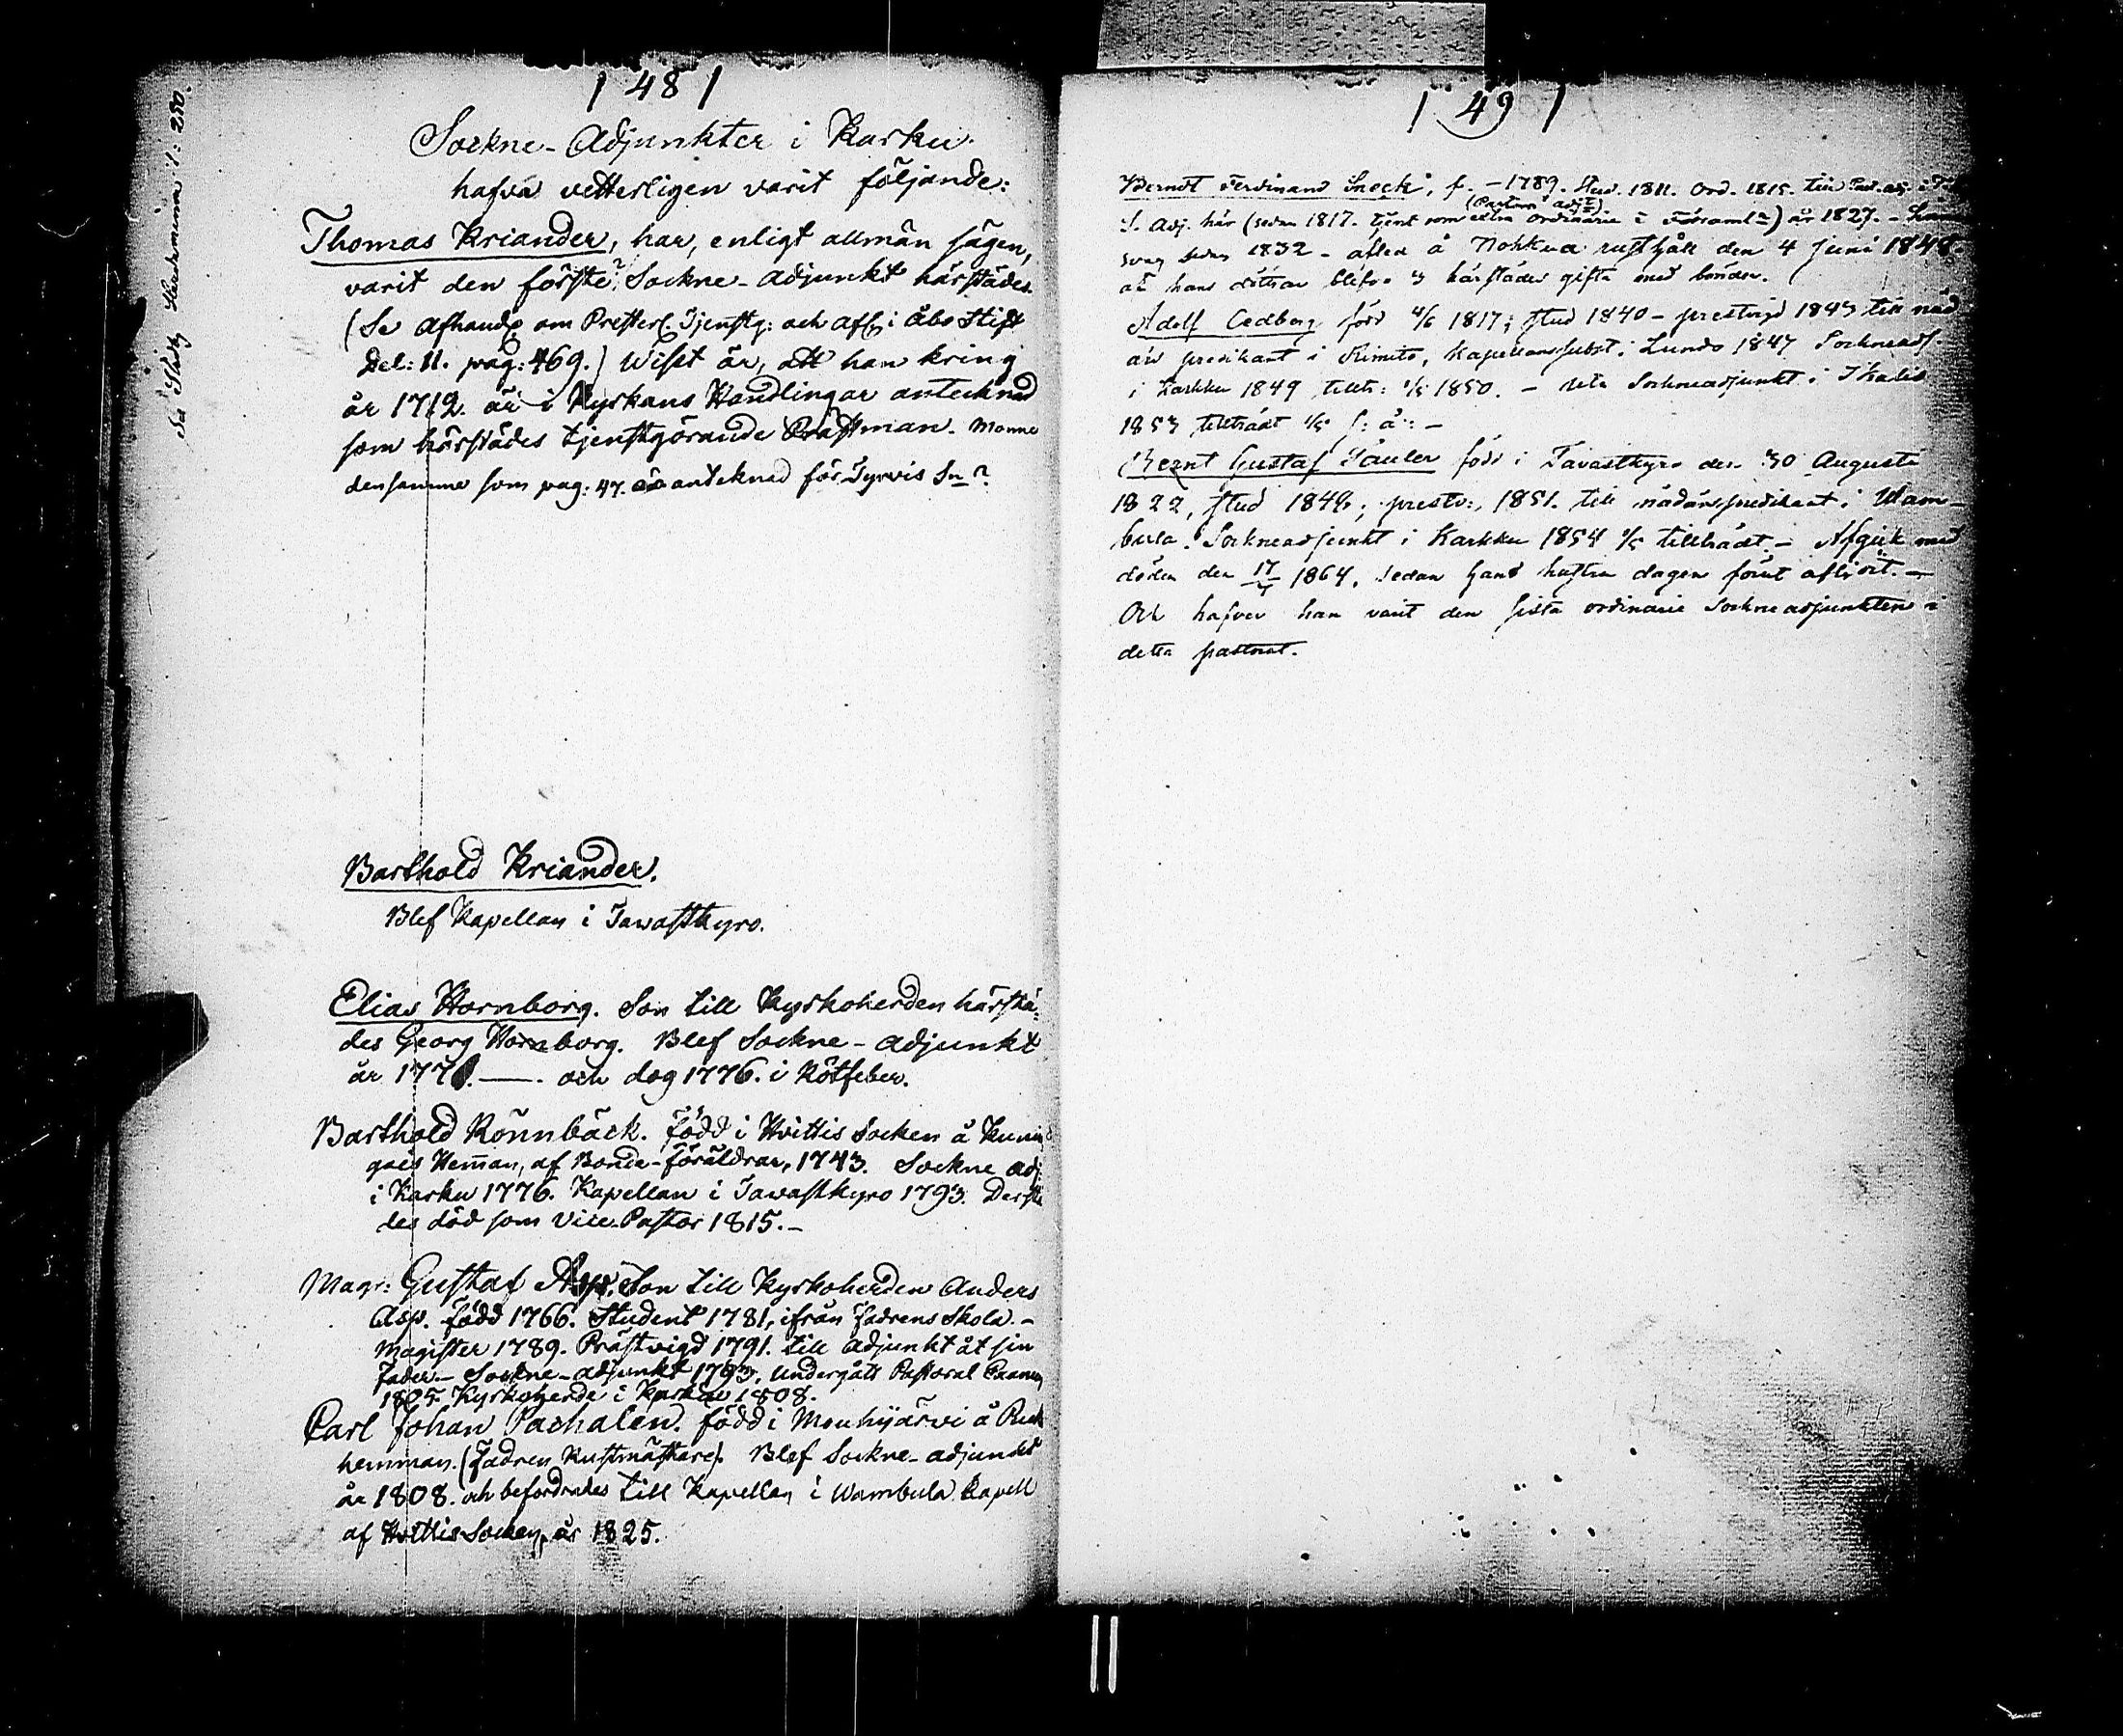 | 48 |
Sockne-Adjunkter i Karku
hafva vetterligen varit följande:
Thomas Kriander, har, enligt allmän sägen,
varit den förste? Sockne-adjunkt härstädes.
(Se Afhandl. om Presterl. Tjenstg: och Afl. i Åbo Stift
Del: II. pag: 469.) Wisst är, att han kring
år 1712. är i Kyrkans Handlingar antecknad
som härstädes tjenstgörande Prästman. Monne
densamme som pag: 47. är anteknad för Tyrvis Sn?
Barthold Kriander.
Blef Kapellan i Tawastkyro.
Elias Hornborg. Son till Kyrkoherden härstä-
des Georg Hornborg. Blef Sockne-adjunkt
år 177 . —. och dog 1776. i Rötfeber.
Barthold Rönnbäck. Född i Hvittis Socken å
gois Heman, af Bonde-föräldrar, 1743. Sockne adj:
i Karku 1776. Kapellan i Tavastkyro 1793. Derstä
des död som Vice-Pastor 1815.-
Magr: Gustaf Asp. Son till Kyrkoherden Anders
Asp. född 1766. Student 1781, ifrån Fadrens Skola. -
Magister 1789. Prästvigd 1791. till adjunkt åt sin
Fader. - Sockne-adjunkt 1793. Undergått Pastoral Examen
1805. Kyrkoherde i Karku 1808.
Carl Johan Pachalen. född i Mouhijärvi å
hemman. (Fadren Rustmästare). Blef Sockne-adjunkt
år 1808. och befordrades till Kapellan i Wambula Kapell
af Hvittis Socken, år 1825.
| 49 |
Berndt Ferdinand Sneck, f. - 1789. Stud. 1811. Ord. 1815. till
(Pastors adj:)
S. Adj. här (sedan 1817. tjent som extra ordinarie i Församl:) år 1827. -
svag sedan 1832 - afled å Nohkua rusthåll den 4 Juni 1848
af hans döttrar blefvo 3 härstädes gifta med bönder.
Adolf Cedberg född 4/6 1817; stud 1840 - prestvigd 1843 till nåd
års predikant i Kimito, Kapellanssubst. i Lundo 1847 Sockneadj.
i Karkku 1849 tilltr: 1/5 1850. - Sockneadjunkt i Ikalis
1853 tillträdt 1/5 s: å: -
Bernt Gustaf Fauler född i Tavastkyro den 30 Augusti
1822, stud 1849; prestv:, 1851. till nådårspredikant i Wam-
bula. Sockneadjunkt i Karkku 1854 1/5 tillträdt. - Afgick med
döden den 17 1864, sedan hans hustru dagen förut aflidit. -
Och hafver han varit den sista ordinarie sockneadjunkten i
detta pastorat.